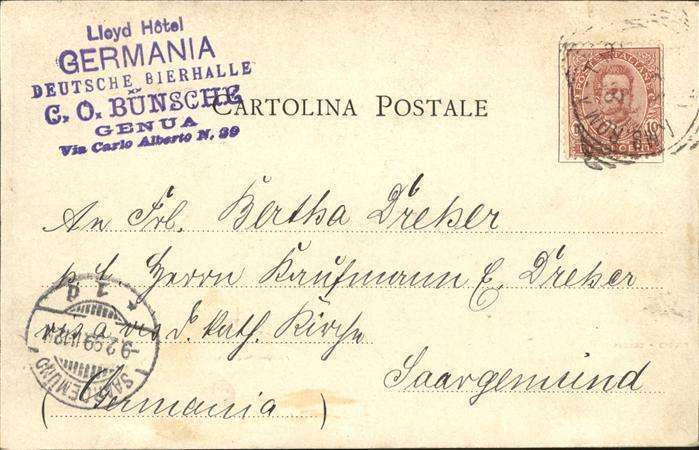 Lloyd Hôtel
GERMANIA
DEUTSCHE BIERHALLE
C. O. BÜNSCHE
GENUA
Via Carlo Alberto N. 39
CARTOLINA POSTALE
POSTE ITALIANE
An Frl. Bertha Dreher
p. t. Herrn Kaufmann E. Dreher
vis a vis d. kath. Kirche
Saargemünd
(Germania)
SAARGEMÜND